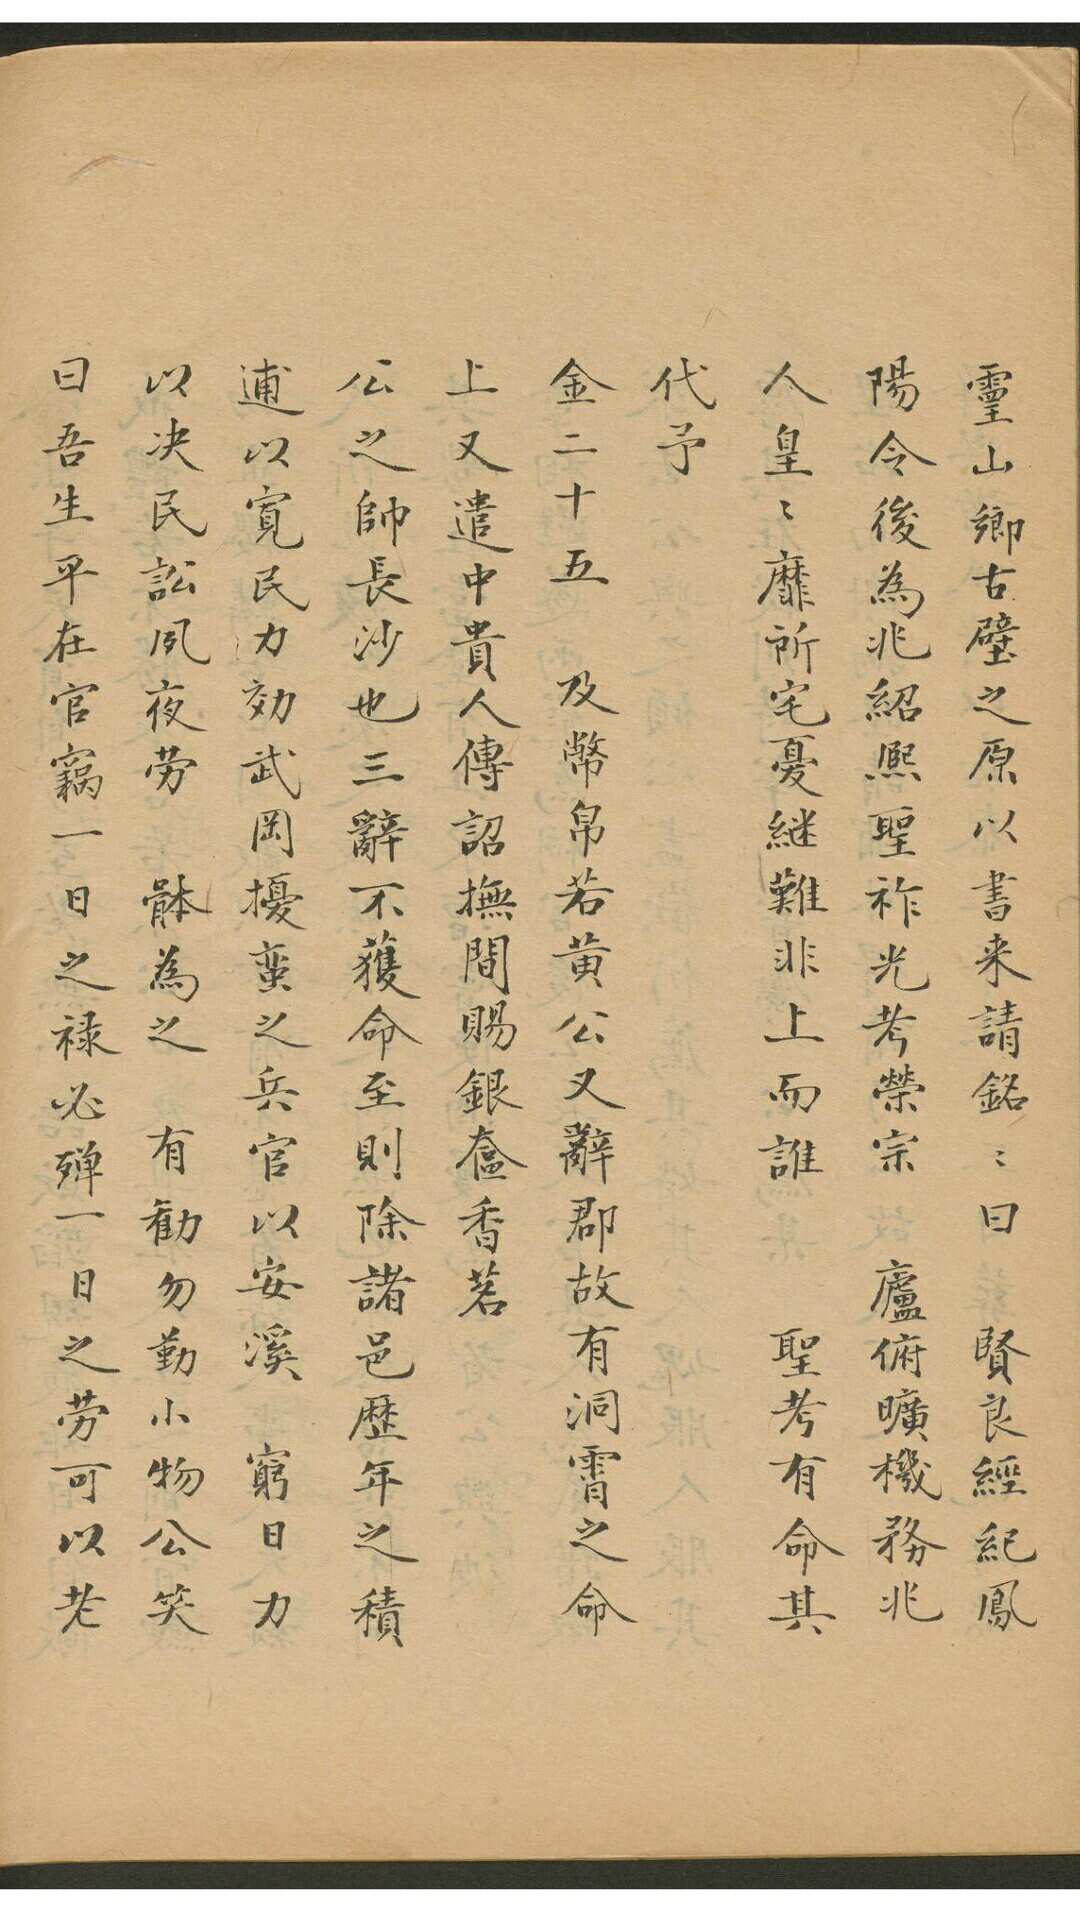 靈山鄉古壁之原以書来請銘〻曰　賢良經紀鳳
陽令後為兆紹熈聖祚光考榮宗　廬俯曠機務兆
人皇〻靡所宅憂継難非上而誰　聖考有命其
代予
金二十五　及幣帛若黄公又辭郡故有洞霄之命
上又遣中貴人傳詔撫問賜銀奩香茗
公之帥長沙也三辭不獲命至則除諸邑歷年之積
逋以寬民力効武岡擾蛮之兵官以安溪　窮日力
以决民訟夙夜劳　骵為之　有勸勿勤小物公笑
曰吾生平在官竊一日之禄必殫一日之劳可以老